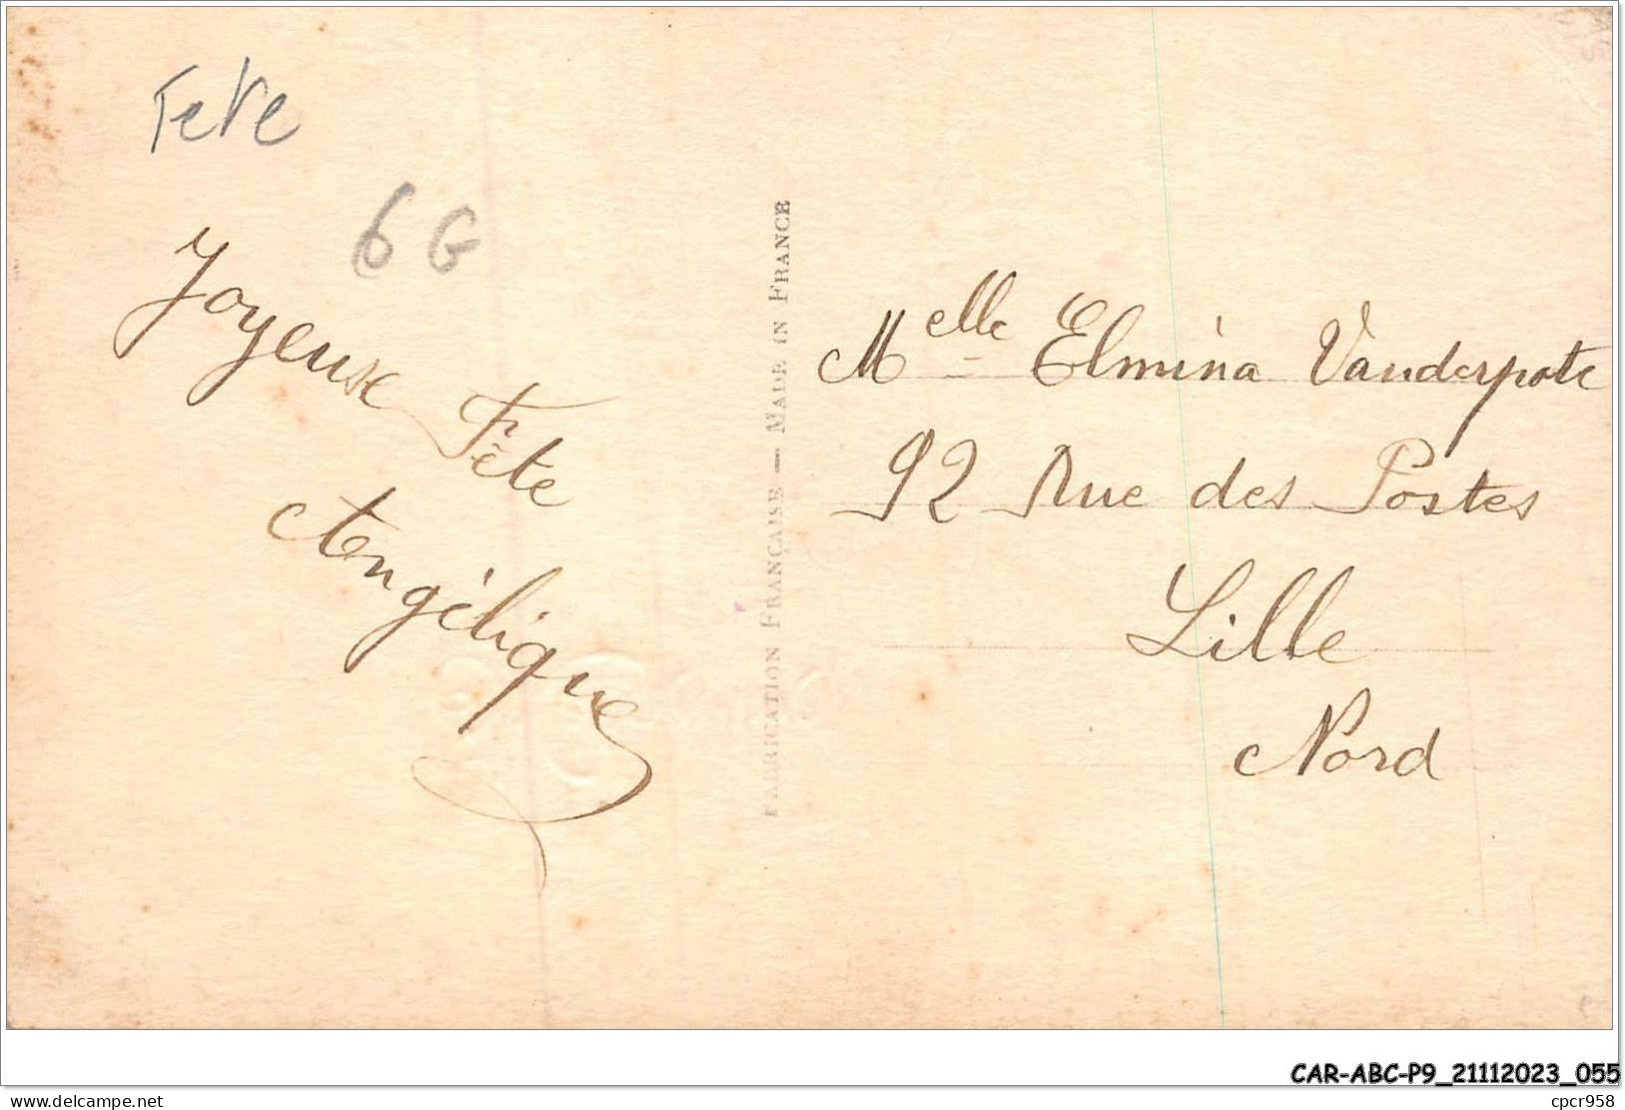 Fete
6 G
Joyeuse
Fête
Angélique
FABRICATION FRANÇAISE — MADE IN FRANCE
Melle Elmina Vanderpote
92 Rue des Postes
Lille
Nord
CAR-ABC-P9_21112023_055
delcampe.net
cpcr958